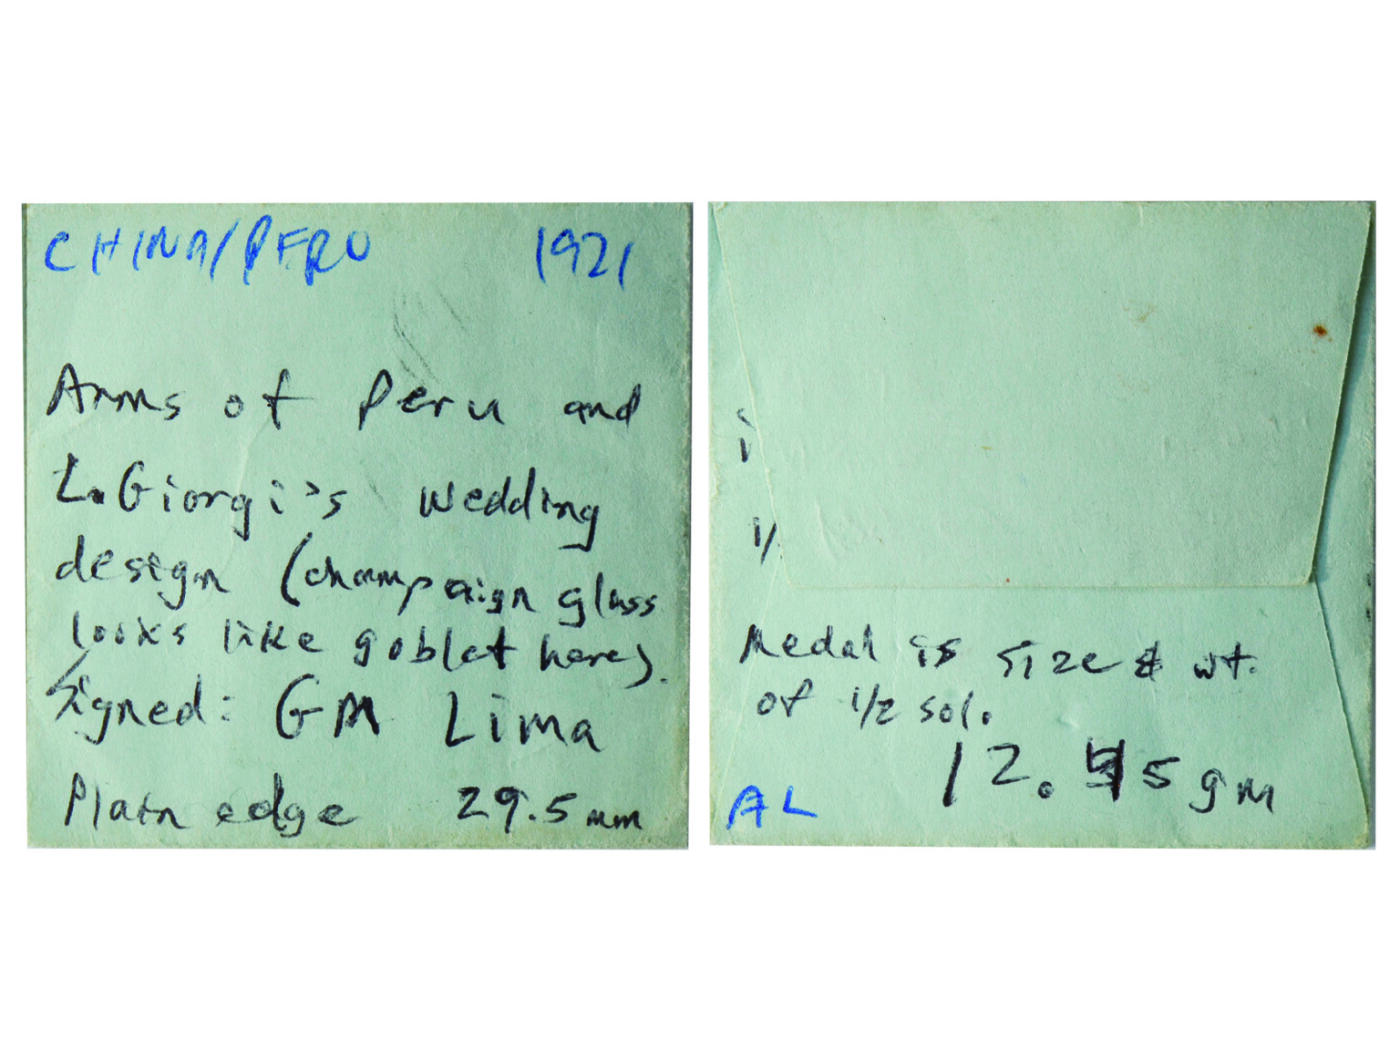 CHINA/PERU 1921
Arms of Peru and
L. Giorgi's wedding
design (champaign glass
looks like goblet here).
Signed: GM Lima
Plain edge 29.5mm
i
1/
Medal is size & wt.
of 1/2 sol.
12. 5gm
AL